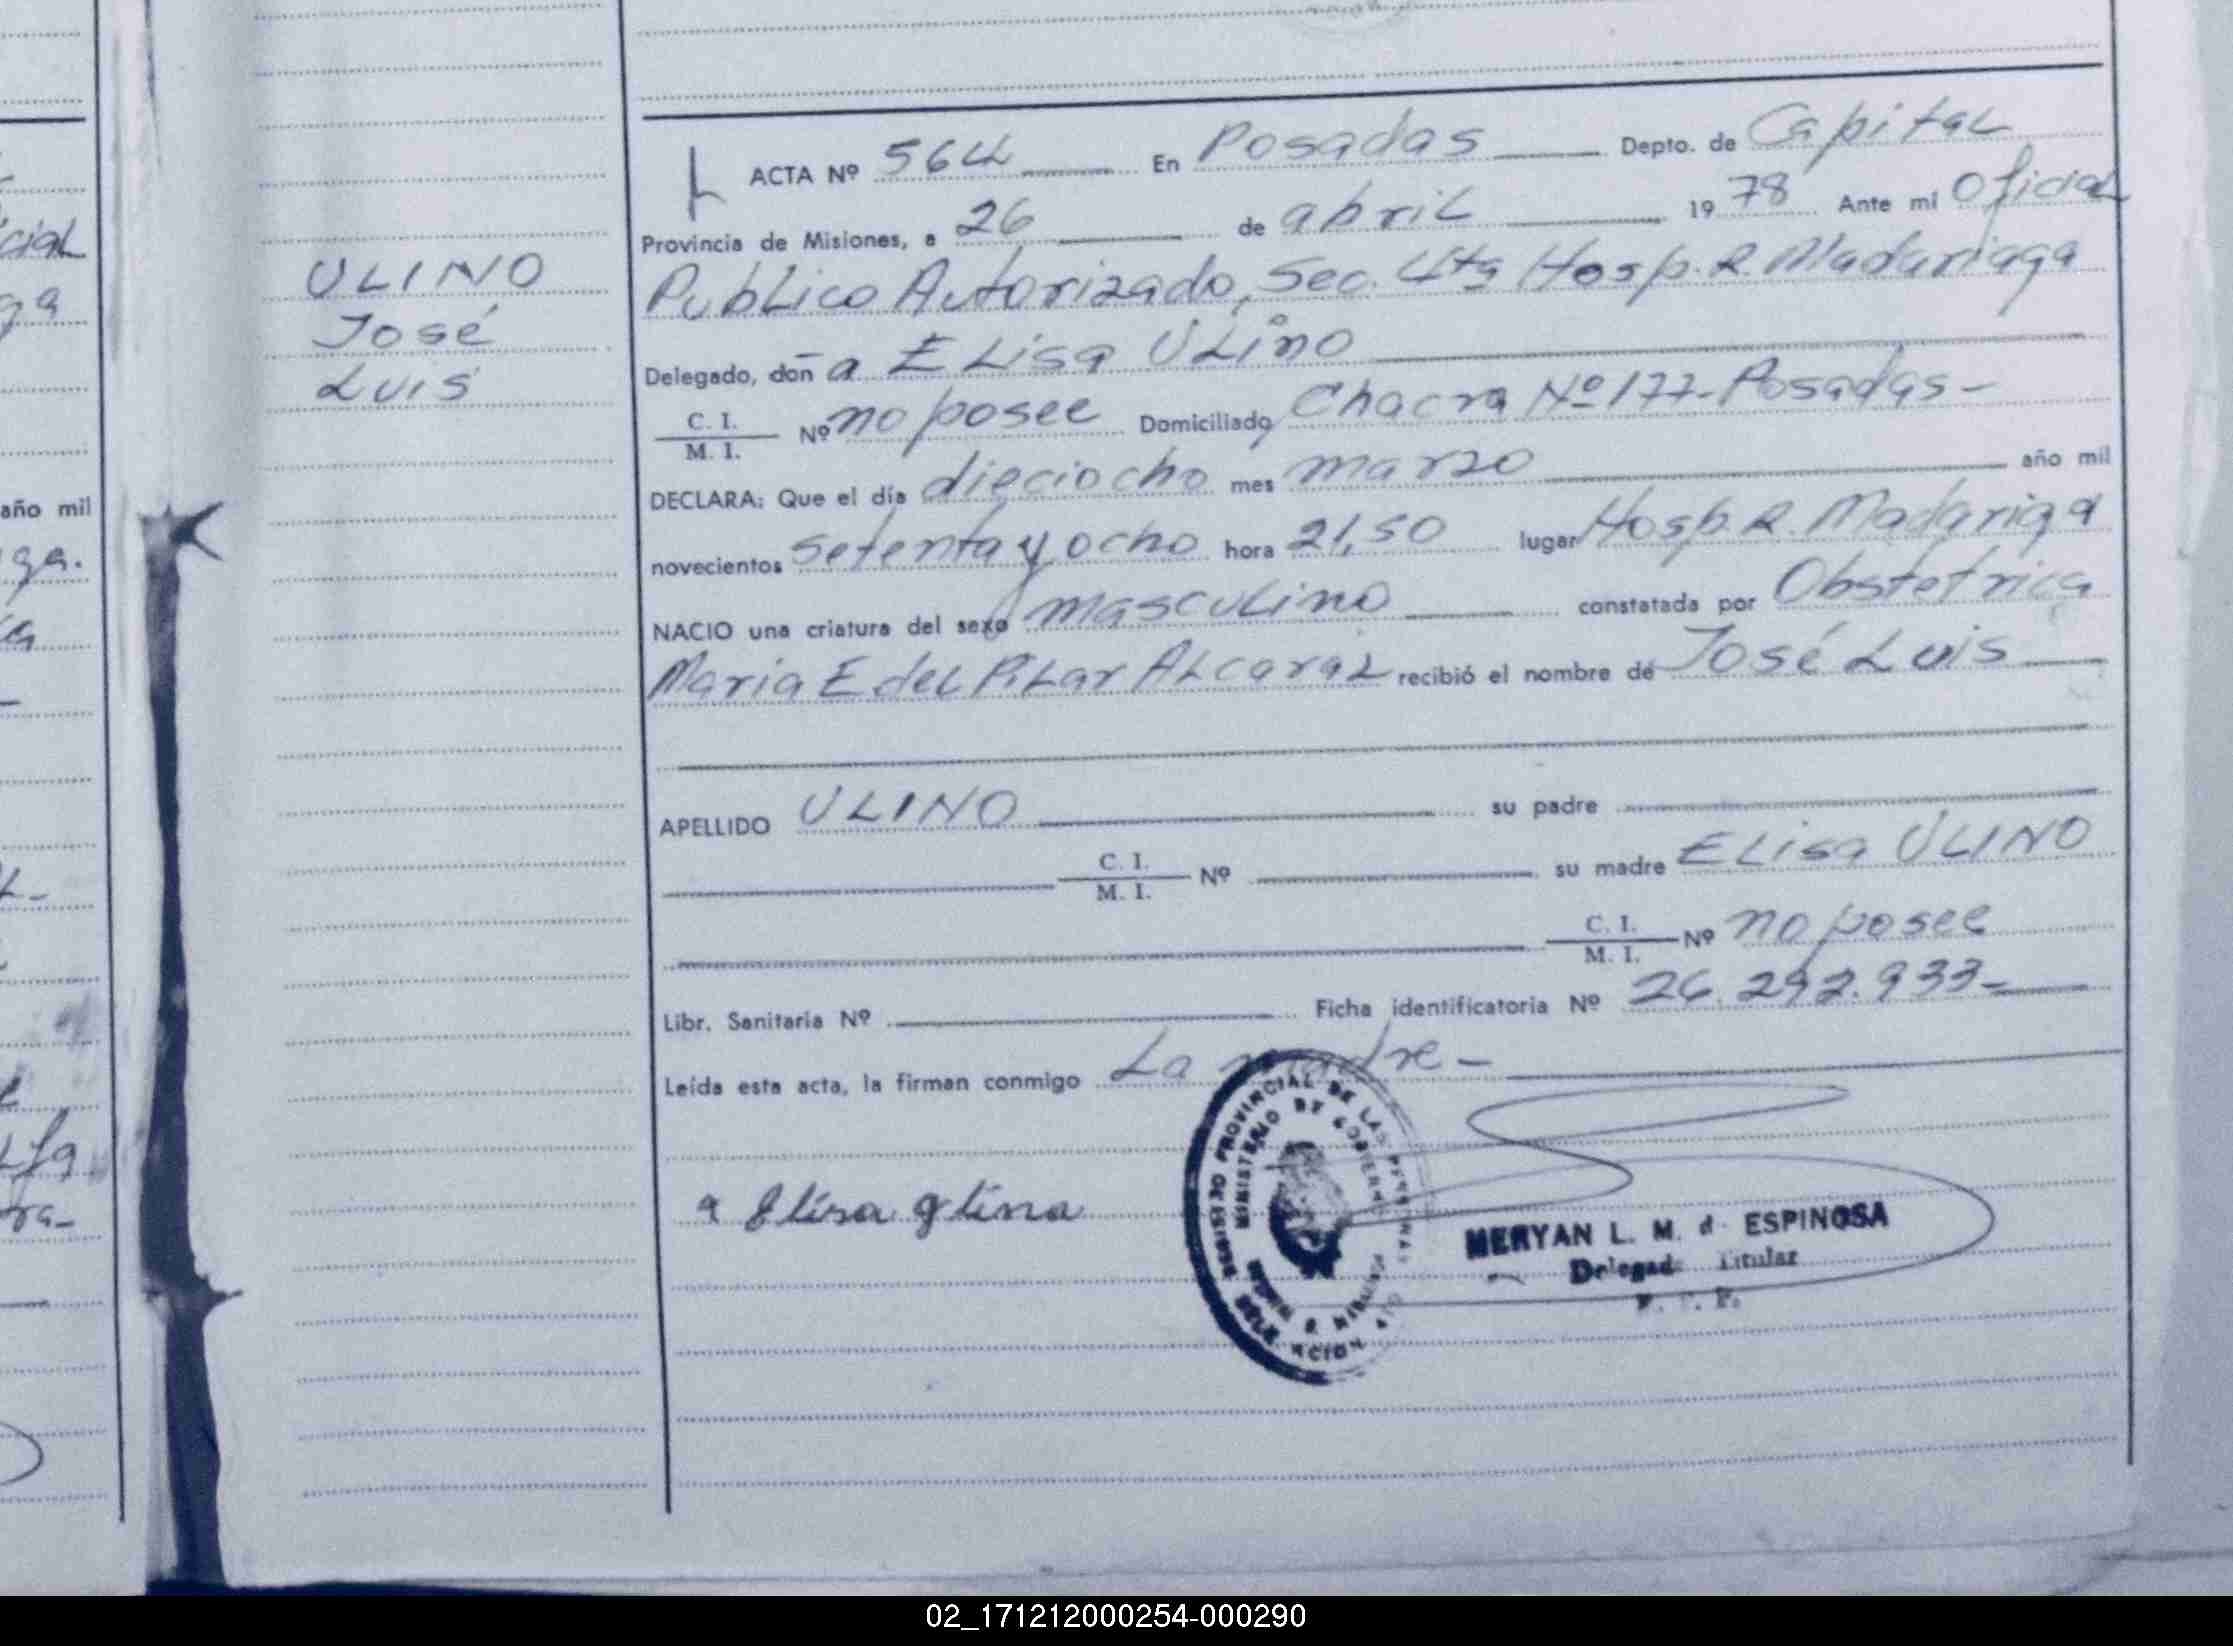 ULINO
José
Luis
ACTA Nº 564 En Posadas Depto. de Capital
Provincia de Misiones, a 26 de abril 1978 Ante mi Oficial
Publico Autorizado, Sec. 4ta Hosp. R. Madariaga
Delegado, don a Elisa Ulino
C. I.
M. I. Nº no posee Domiciliado Chacra Nº 177- Posadas-
DECLARA: Que el día dieciocho mes marzo año mil
novecientos setenta y ocho hora 21,50 lugar Hosp. R. Madariaga
NACIO una criatura del sexo masculino constatada por Obstetrica
Maria E del Pilar Alcaraz recibió el nombre de José Luis
APELLIDO ULINO su padre
C. I.
M. I. Nº su madre Elisa ULINO
C. I.
M. I. Nº no posee
Libr. Sanitaria Nº Ficha identificatoria Nº 26.292.933-
Leída esta acta, la firman conmigo La madre-
Elisa
REGISTRO PROVINCIAL DE LAS PERSONAS
MINISTERIO DE GOBIERNO
MERYAN L. M. d ESPINOSA
Delegad Titular
año mil
02_171212000254-000290